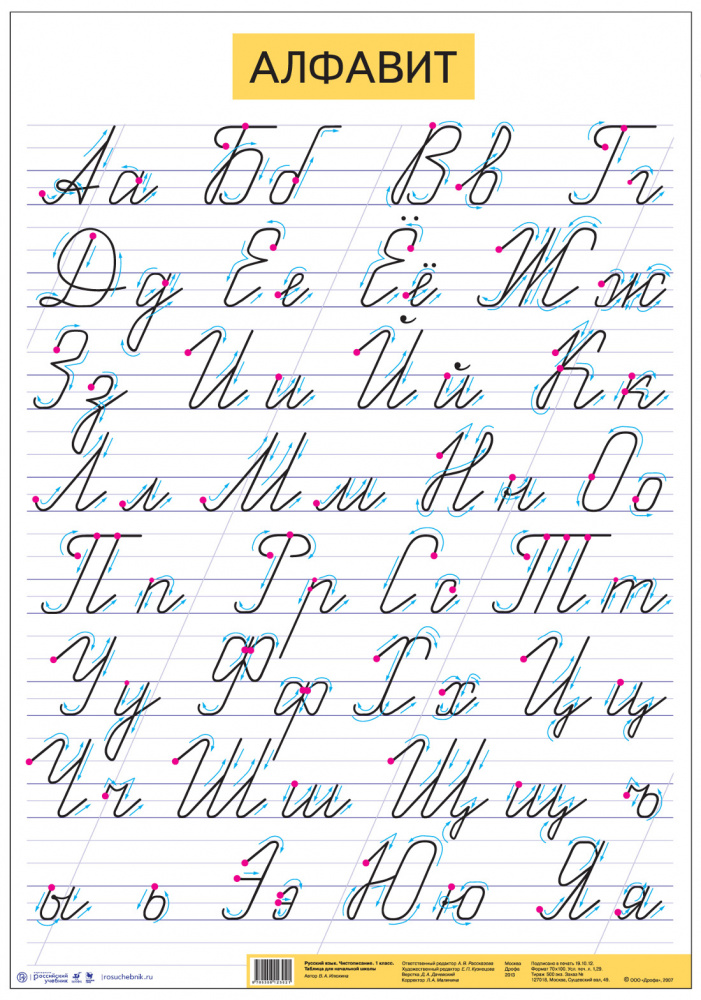 АЛФАВИТ
Аа Бб Вв Гг
Дд Ее Ёё Жж
Зз Ии Йй Кк
Лл Мм Нн Оо
Пп Рр Сс Тт
Уу Фф Хх Цц
Чч Шш Щщ ъ
ы ь Ээ Юю Яя
российский учебник
rosuchebnik.ru
Русский язык. Чистописание. 1 класс.
Таблица для начальной школы
Автор В. А. Илюхина
Ответственный редактор А. В. Рассказова
Художественный редактор Е. П. Кузнецова
Верстка Д. А. Дачевский
Корректор Л. А. Малинина
Москва
Дрофа
2013
Подписано в печать 19.10.12.
Формат 70х100. Усл. печ. л. 1,29.
Тираж 500 экз. Заказ №
127018, Москва, Сущевский вал, 49.
© ООО «Дрофа», 2007